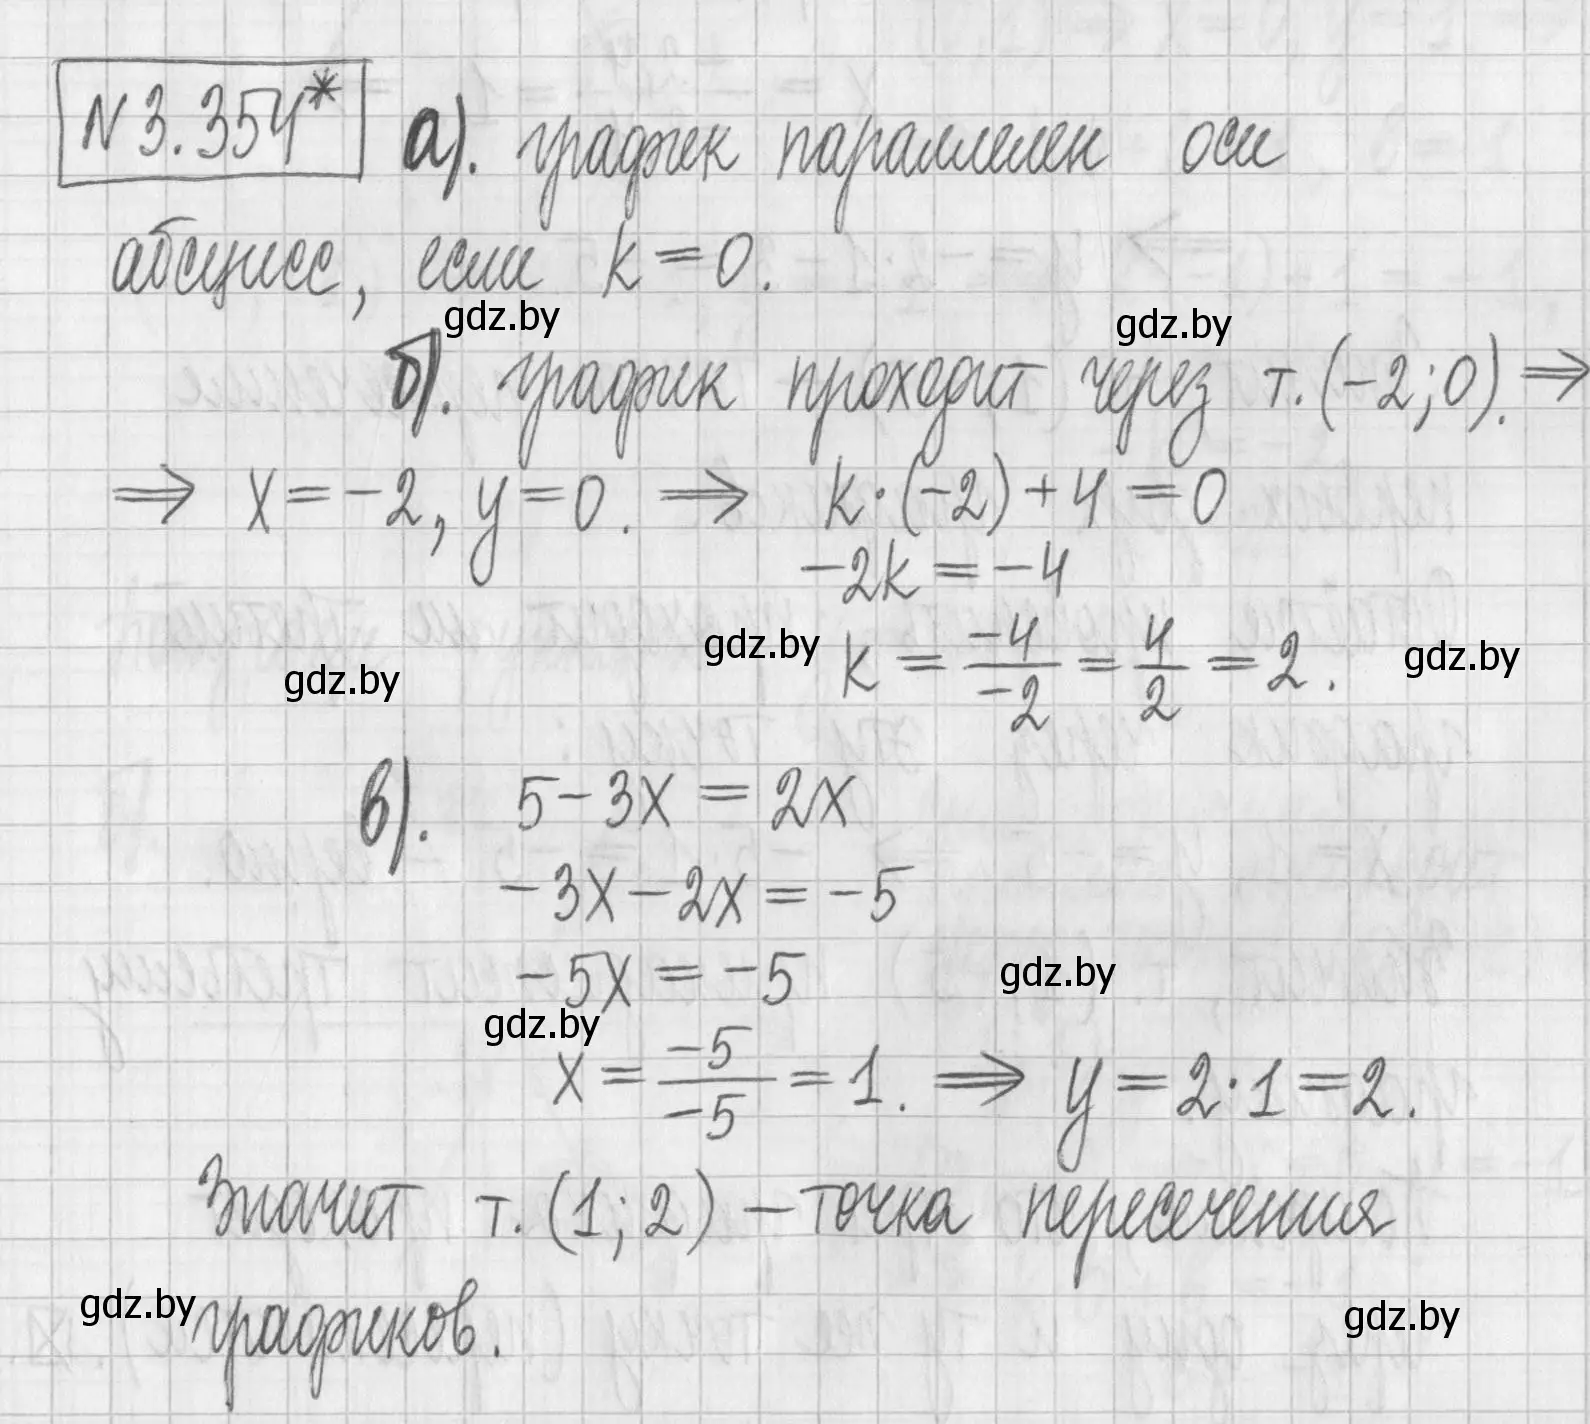 № 3.354* а). график параллелен оси
абсцисс, если k = 0.
gdz.by
gdz.by
б). график проходит через т. (-2; 0). ⇒
⇒ x = -2, y = 0. ⇒ k · (-2) + 4 = 0
-2k = -4
gdz.by k = -4/-2 = 4/2 = 2. gdz.by
gdz.by
в). 5 - 3x = 2x
-3x - 2x = -5
-5x = -5 gdz.by
gdz.by
x = -5/-5 = 1. ⇒ y = 2 · 1 = 2.
Значит т. (1; 2) – точка пересечения
gdz.by графиков. gdz.by